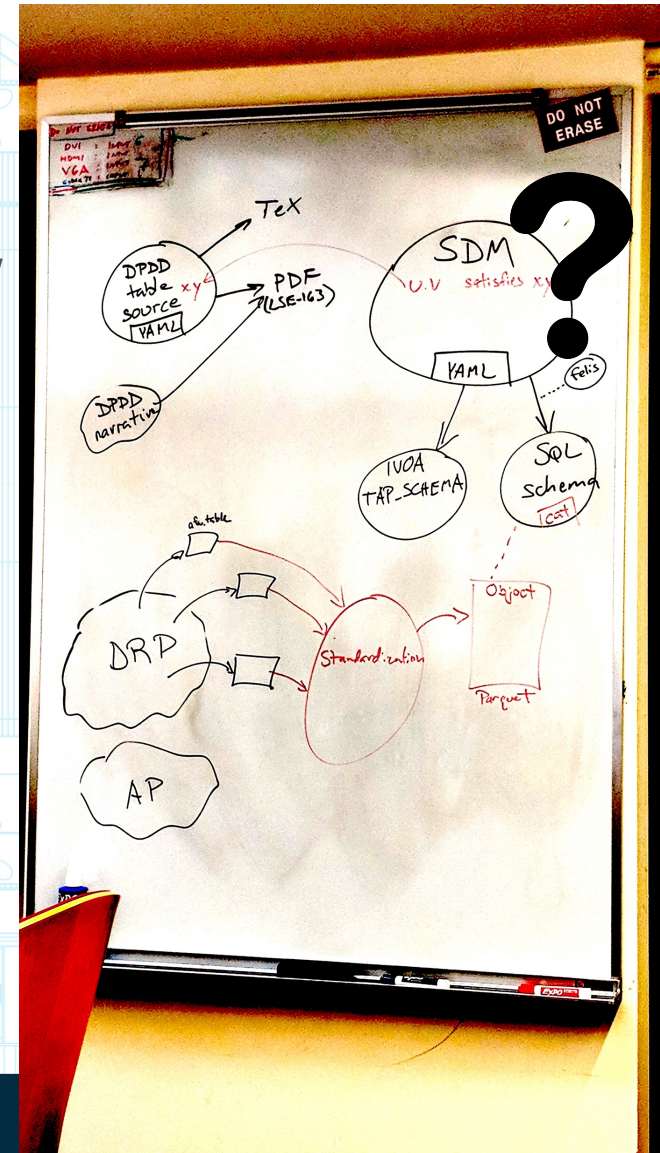 DO NOT ERASE
DVI : INPUT 6
HDMI : INPUT
VGA : INPUT
DO NOT
ERASE
TeX
DPDD
table
source
xy
YAML
PDF
(LSE-163)
DPDD
narrative
SDM
U.V satisfies xy
?
YAML
felis
IVOA
TAP_SCHEMA
SQL
schema
cat
afw.table
DRP
Standardization
Object
Parquet
AP
EXPO